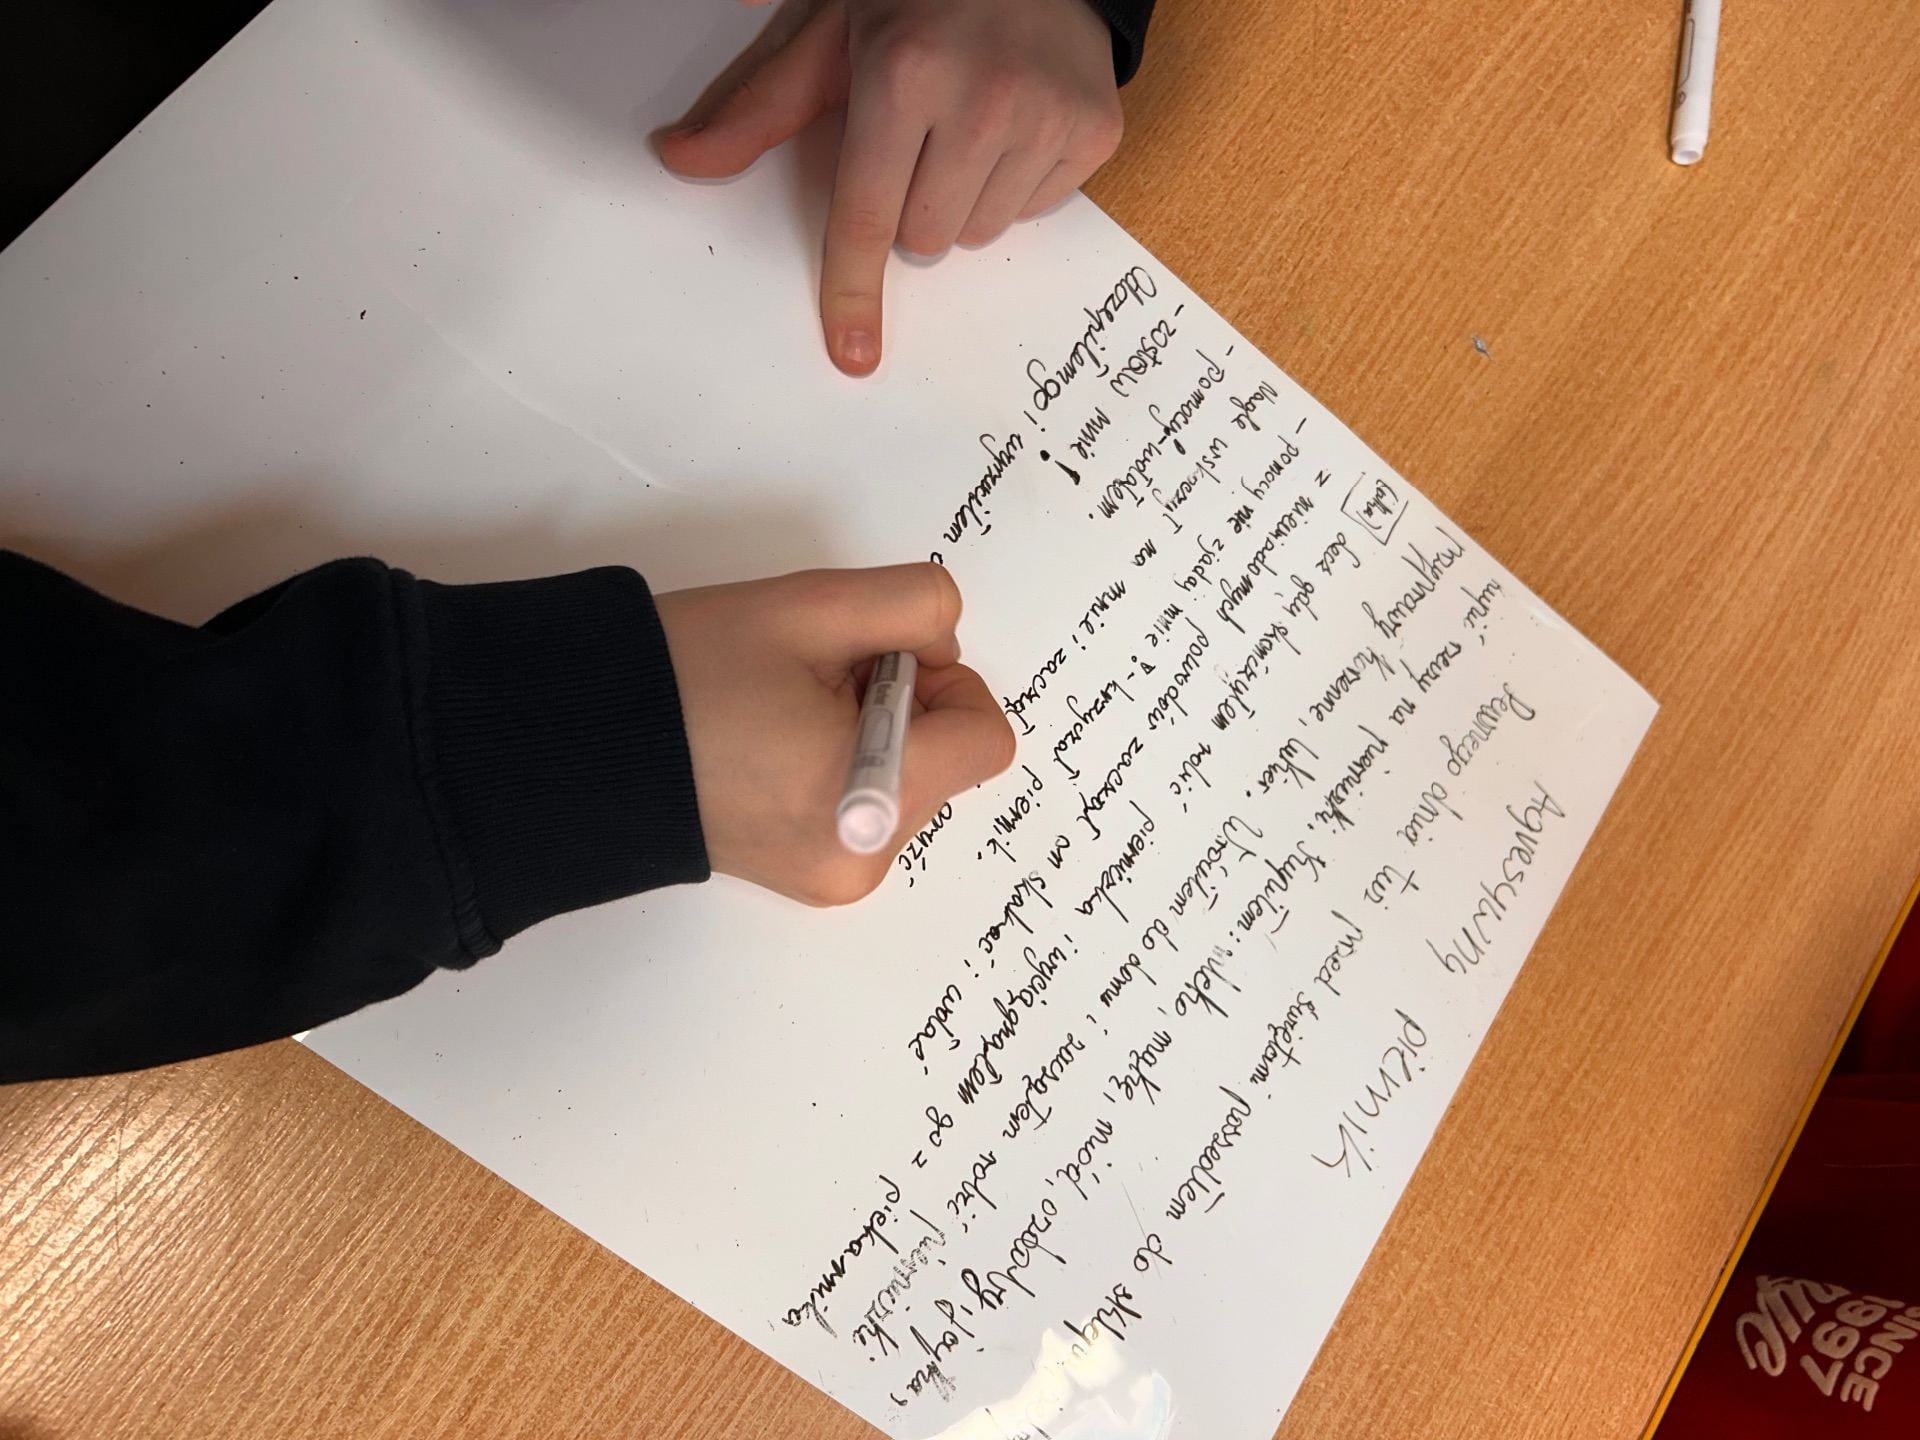 Agresywny piernik
Pewnego dnia tuż przed świętami poszedłem do sklepu
kupić rzeczy na pierniczki. Kupiłem: mleko, mąkę, miód, ozdoby, jajka,
przyprawy korzenne, lukier. Wróciłem do domu i zacząłem robić pierniczki.
(ołka) Lecz gdy skończyłem robić pierniczka i wyciągnąłem go z piekarnika,
z niewiadomych powodów zaczął on skakać i wołać
- pomocy nie zjadaj mnie! - krzyczał piernik.
Nagle wskoczył na mnie i zaczął gryźć
- pomocy - wołałem.
- zostaw mnie!
Odczepiłem go i wyrzuciłem
SINCE
1997